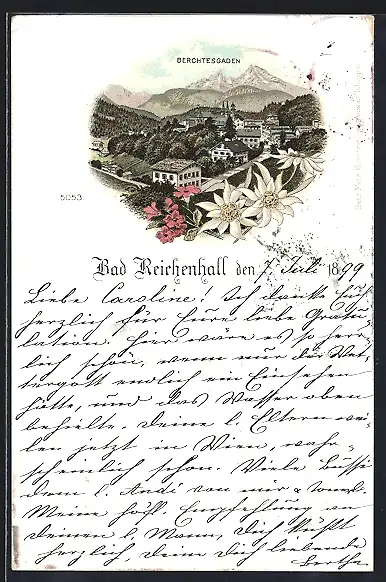 BERCHTESGADEN
5053
Bad Reichenhall den 7. Juli 1899
Liebe Caroline! Ich danke Euch
herzlich für Eure liebe Gratu-
lation. Hier wäre es so herr-
lich schön, wenn nur der Wet-
tergott endlich ein Einsehen
hätte, und das Wasser oben
behielte. Deine l. Eltern wei-
len jetzt in Wien, wahr-
scheinlich schon. Viele Bussi
dem l. Andi von mir &
Meine höfl. Empfehlung an
Deinen l. Mann, Dich küßt
herzlich, Deine Dich liebende
Bertha